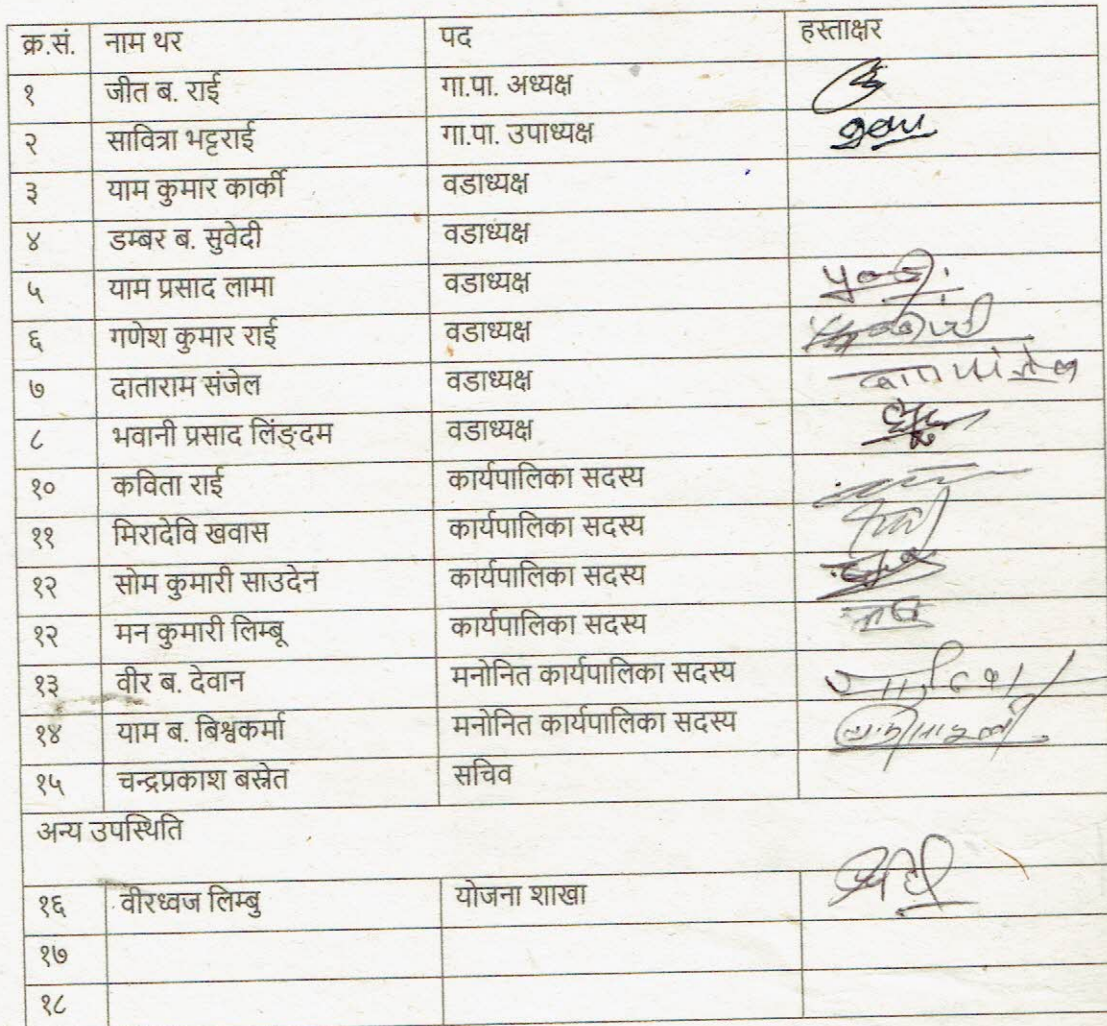 क्र.सं. नाम थर पद हस्ताक्षर
१ जीत ब. राई गा.पा. अध्यक्ष
२ सावित्रा भट्टराई गा.पा. उपाध्यक्ष
३ याम कुमार कार्की वडाध्यक्ष
४ डम्बर ब. सुवेदी वडाध्यक्ष
५ याम प्रसाद लामा वडाध्यक्ष
६ गणेश कुमार राई वडाध्यक्ष
७ दाताराम संजेल वडाध्यक्ष
८ भवानी प्रसाद लिंङ्दम वडाध्यक्ष
१० कविता राई कार्यपालिका सदस्य
११ मिरादेवि खवास कार्यपालिका सदस्य
१२ सोम कुमारी साउदेन कार्यपालिका सदस्य
१२ मन कुमारी लिम्बू कार्यपालिका सदस्य
१३ वीर ब. देवान मनोनित कार्यपालिका सदस्य
१४ याम ब. बिश्वकर्मा मनोनित कार्यपालिका सदस्य
१५ चन्द्रप्रकाश बस्नेत सचिव
अन्य उपस्थिति
१६ वीरध्वज लिम्बु योजना शाखा
१७
१८